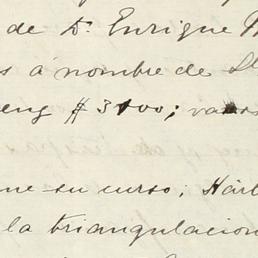 de Dn. Enrique
s á nombre de
eng $ 3100; varas
ne su curso; Harl
la triangulacion